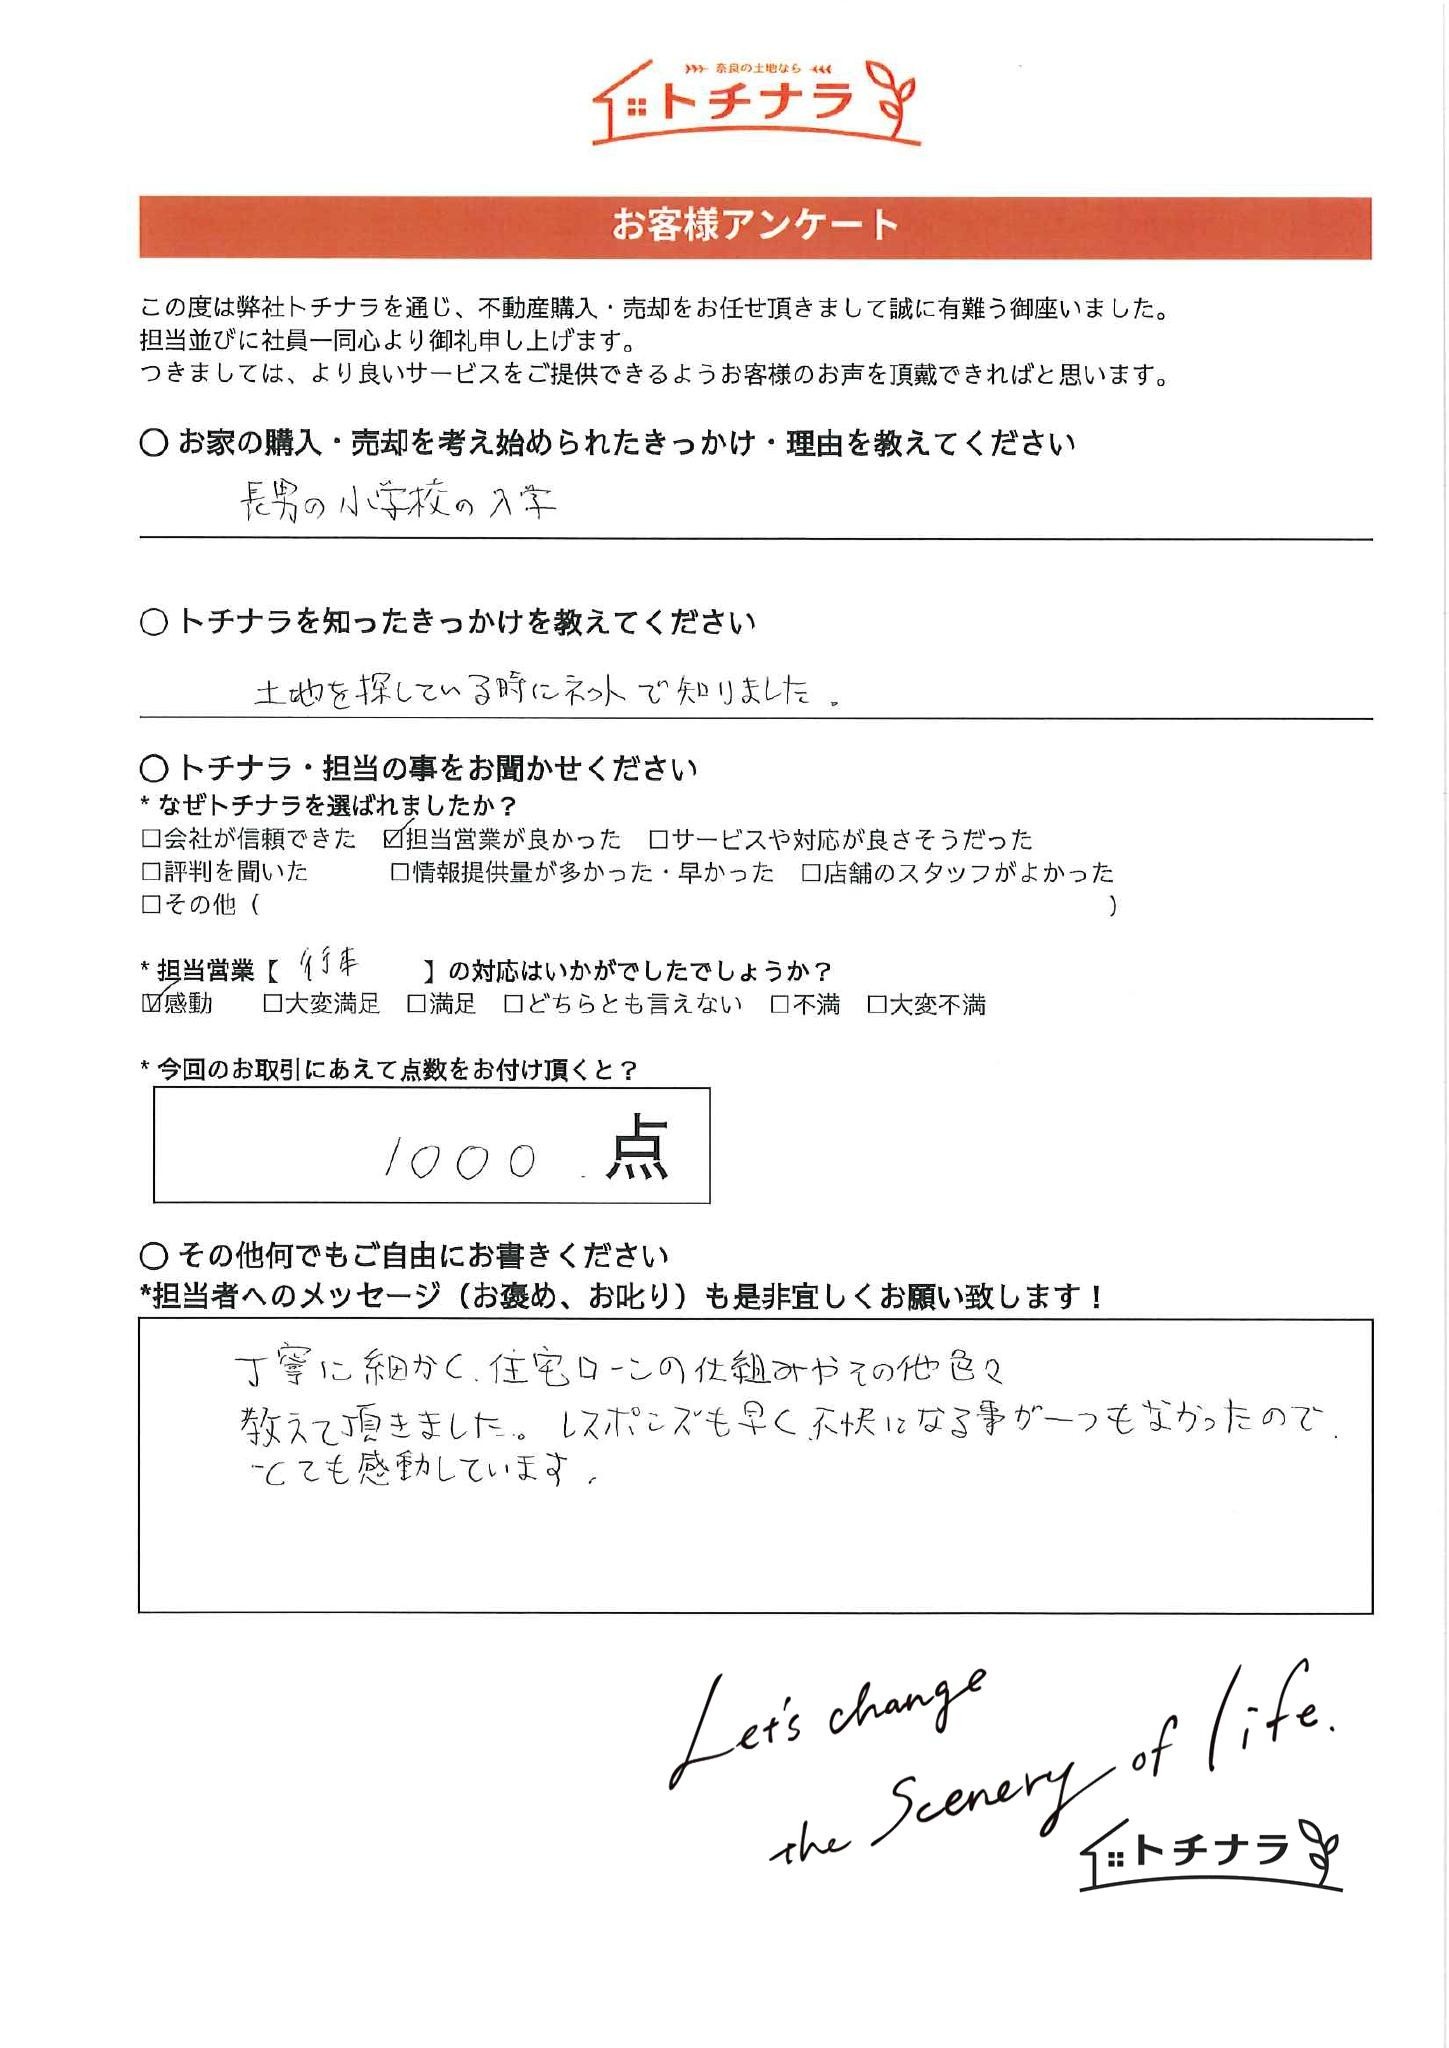 奈良の土地なら
トチナラ
お客様アンケート
この度は弊社トチナラを通じ、不動産購入・売却をお任せ頂きまして誠に有難う御座いました。
担当並びに社員一同心より御礼申し上げます。
つきましては、より良いサービスをご提供できるようお客様のお声を頂戴できればと思います。
〇 お家の購入・売却を考え始められたきっかけ・理由を教えてください
長男の小学校の入学
〇 トチナラを知ったきっかけを教えてください
土地を探している時にネットで知りました.
〇 トチナラ・担当の事をお聞かせください
* なぜトチナラを選ばれましたか？
☐会社が信頼できた ☑担当営業が良かった ☐サービスや対応が良さそうだった
☐評判を聞いた ☐情報提供量が多かった・早かった ☐店舗のスタッフがよかった
☐その他（ ）
* 担当営業【 】の対応はいかがでしたでしょうか？
☑感動 ☐大変満足 ☐満足 ☐どちらとも言えない ☐不満 ☐大変不満
* 今回のお取引にあえて点数をお付け頂くと？
1000 点
〇 その他何でもご自由にお書きください
*担当者へのメッセージ（お褒め、お叱り）も是非宜しくお願い致します！
丁寧に細かく、住宅ローンの仕組みやその他色々
教えて頂きました。レスポンズも早く、不快になる事が一つもなかったので、
とても感動しています.
Let's change
the Scenery of life.
トチナラ